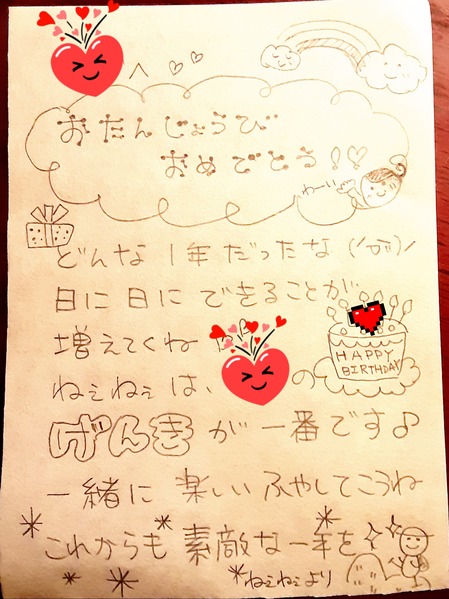 おたんじょうび
おめでとう!!♡
わーい
どんな1年だったな
日に日にできることが
増えてくね
HAPPY
BIRTHDAY
ねぇねぇは、の
げんきが一番です♪
一緒に楽しいふやしてこうね
これからも素敵な一年を
ねぇねぇより